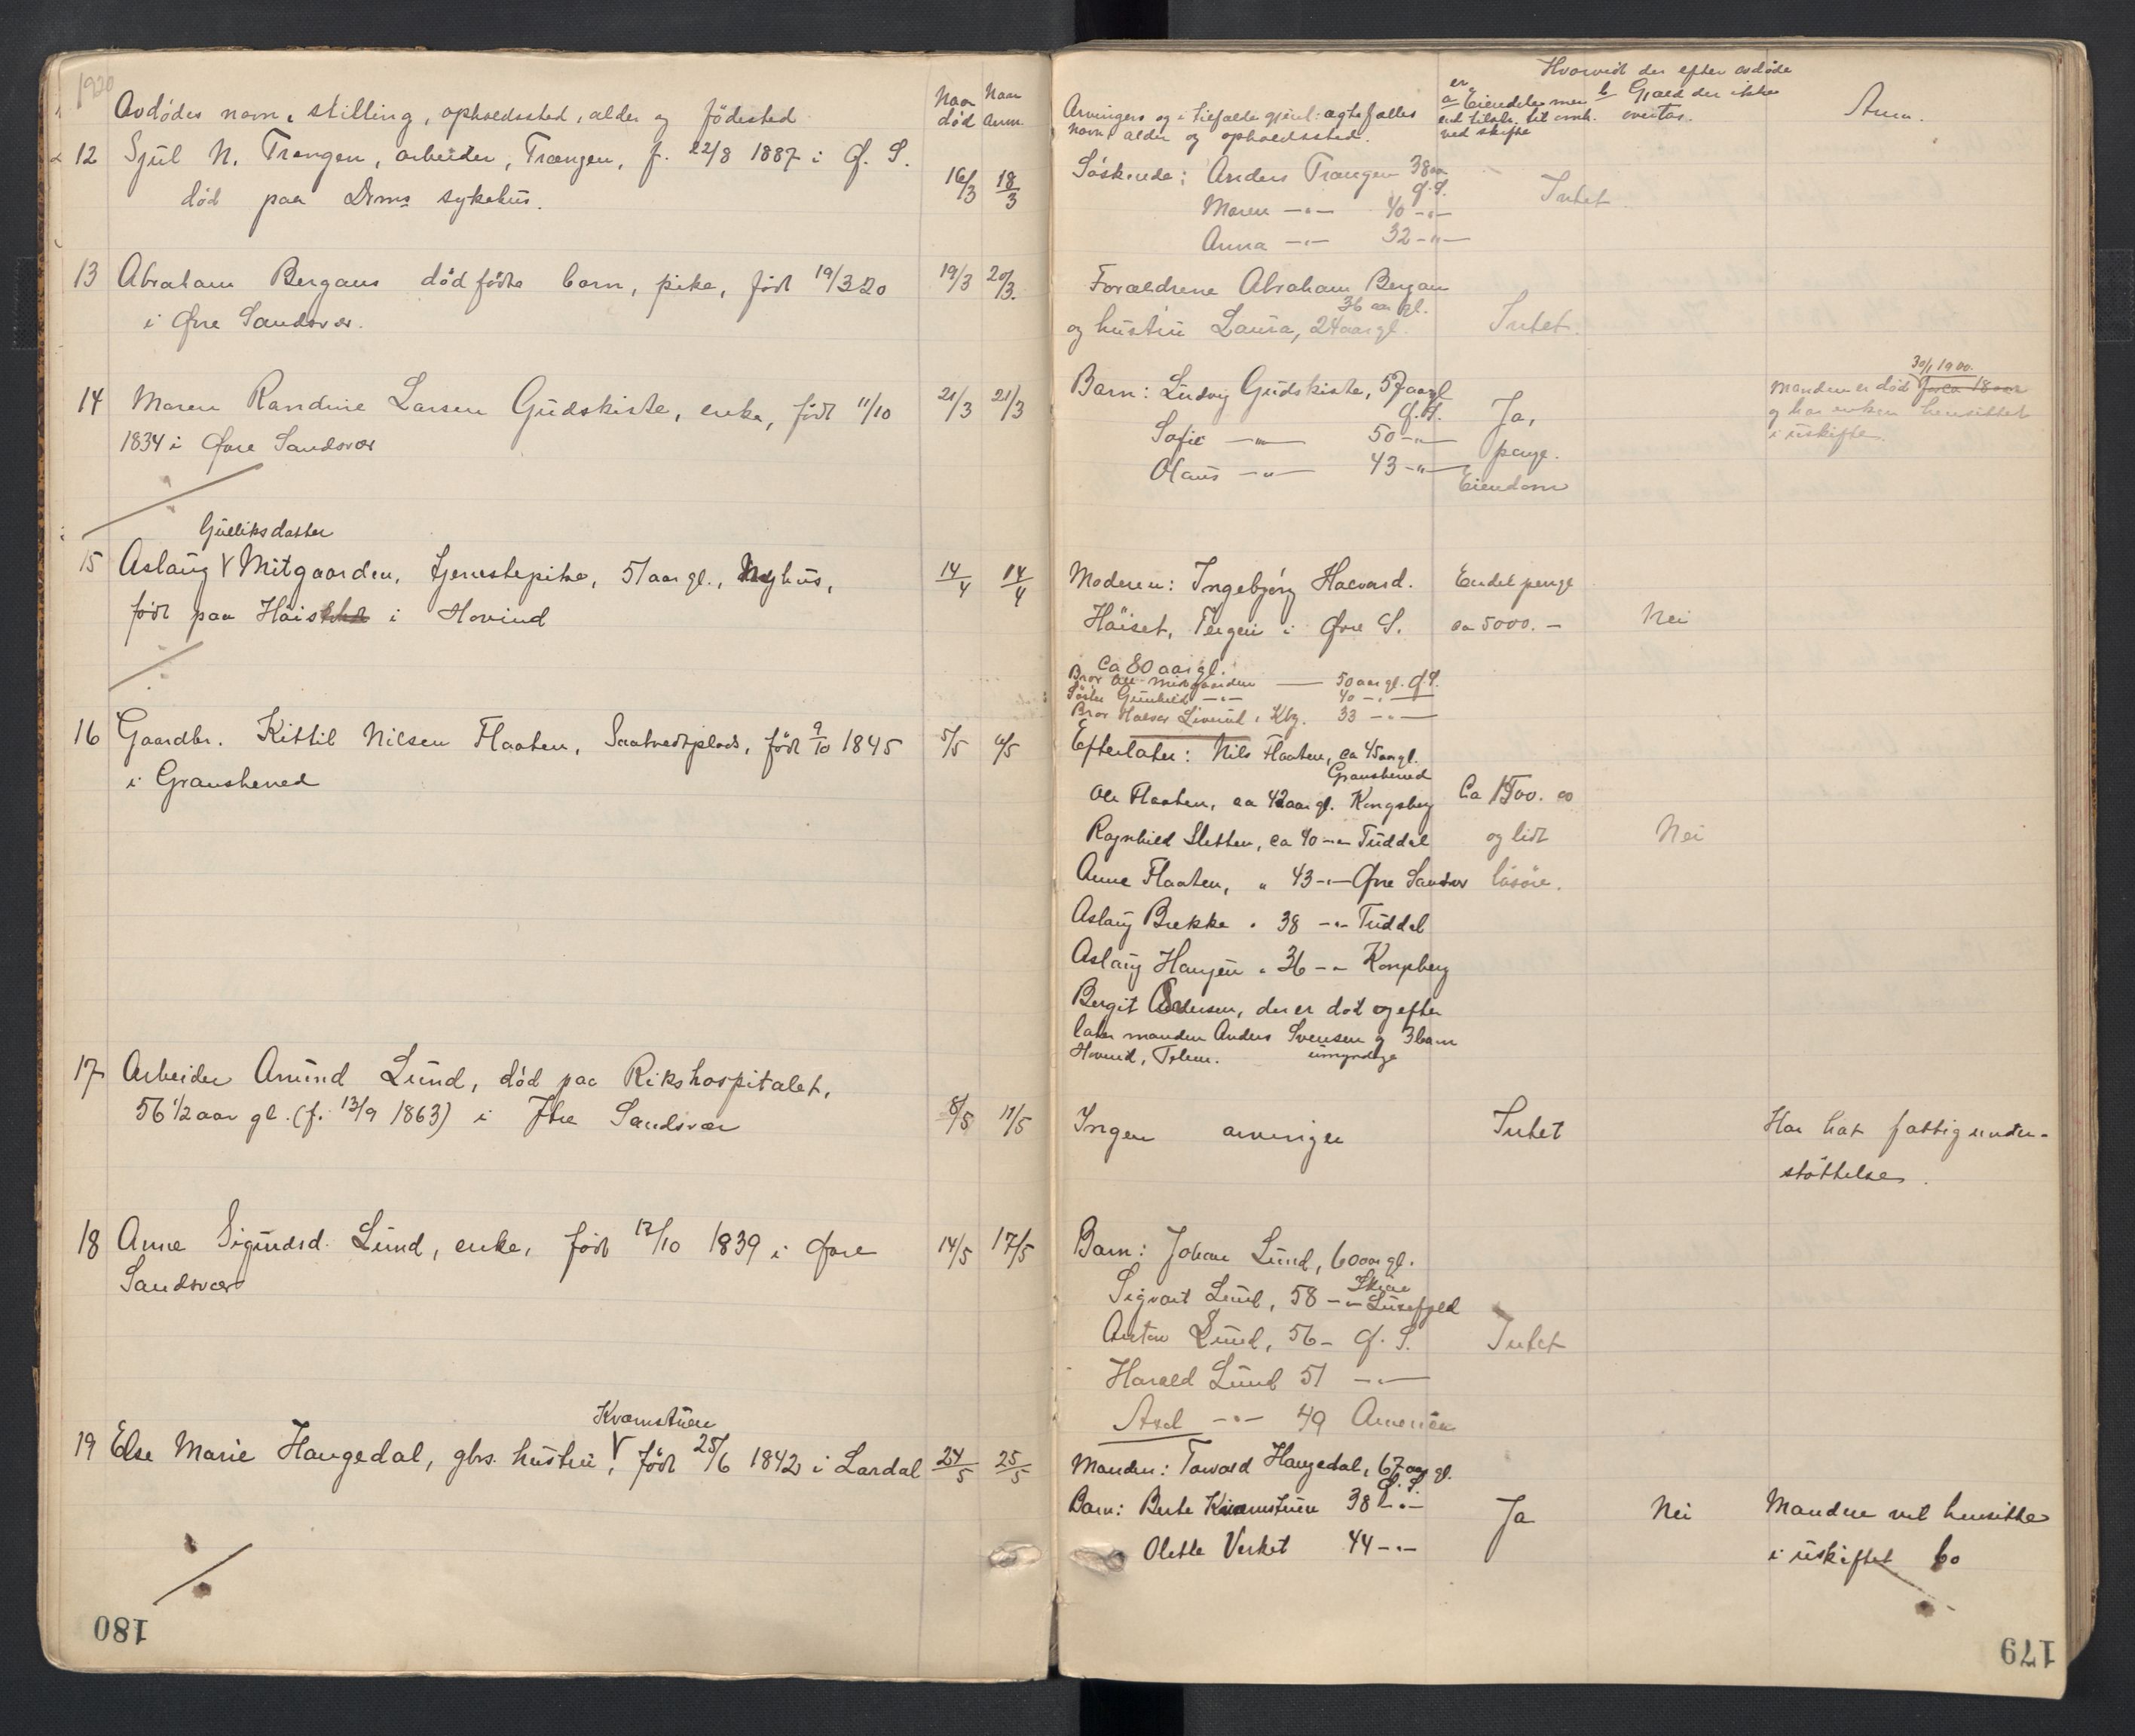 1920
Avdødes navn, stilling, opholdssted, alder og fødested
Naar død
Naar anm.
12 Sjul N. Trængen, arbeider, Trængen, f. 22/8 1887 i Ø. S.
død paa Drms sykehus.
16/3 18/3
13 Abraham Bergans dødfødte barn, pike, født 19/3 20
19/3 20/3.
i Øvre Sandsvær.
14 Maren Randine Larsen Gudskiste, enke, født 11/10
21/3 21/3
1834 i Øvre Sandsvær
Gulliksdatter
15 Aslaug V Mitgaarden, tjenestepike, 51 aar gl., Myhus,
14/4 14/4
født paa Høis i Hovind
16 Gaardbr. Kittil Nilsen Flaaten, Saatvedtplads, født 9/10 1845
5/5 6/5
i Gransherred
17 Arbeider Amund Lund, død paa Rikshospitalet,
56 1/2 aar gl. (f. 13/9 1863) i Ytre Sandsvær
8/5 11/5
18 Anne Sigurdsd. Lund, enke, født 12/10 1839 i Øvre
14/5 17/5
Sandsvær
Kvamstuen
19 Else Marie Haugedal, gbrs. hustru, V født 25/6 1842 i Lardal
24/5 25/5
180
Hvorvidt der efter avdøde
er
a Eiendeler men
b Gjæld der ikke
Arvingers og i tilfælde gjenl. ægtefælles
navn, alder og opholdssted.
ved skifte
overtas.
Anm.
Søskende: Anders Trangen 38 aar
Ø.S.
Maren —"— 40 —"—
Intet.
Anna —"— 32 —"—
Forældrene Abraham Bergan
36 aar gl.
og hustru Laura, 24 aar gl.
Intet.
Barn: Ludvig Gudskiste, 57 aar gl
Ø.S.
Sofie —"— 50 —"—
Olaus —"— 43 —"—
Ja,
penge.
Eiendom
30/1 1900.
Manden er død for ca 18 aar
og har enken hensittet
i uskifte.
Moderen: Ingebjørg Halvard.
Endel penge
Høiset, i Øvre S.
ca 5000. —
Nei
ca 80 aar gl.
Bror Ole Mitgaarden — 50 aar gl. Ø.S.
Søster Gunhild —"— 40 —"—
Bror Halvor , Kbg. 33 —"—
Efterlater: Nils Flaaten, ca 45 aar gl.
Gransherred
Ole Flaaten, ca 42 aar gl. Kongsberg
Ca 1500. 00
Ragnhild Sletten, ca 40 —"— Tuddal
og lidt
Nei
Anne Flaaten, " 43 —"— Øvre Sandsv
løsøre.
Aslaug Brekke " 38 —"— Tuddal
Aslaug Haugen " 36 —"— Kongsberg
Bergit , der er død og efter
later manden Anders Svensen og 3 barn
Hovind, Telem. umyndige
Ingen arvinger
Intet
Har hat fattigunder-
støttelse.
Barn: Johan Lund, 60 aar gl.
Skien
Sigvart Lund, 58 —"— Lurefjeld
Anton Lund, 56 — Ø. S.
Intet
Harald Lund 51 —"—
Axel —"— 49 Amerika
Manden: Torvald Haugedal, 67 aar gl.
Ø. S.
Barn: Berte Kvamstuen 38 —"—
Ja
Nei
Manden vil hensitte
Olette Verket 44 —"—
i uskiftet bo
179